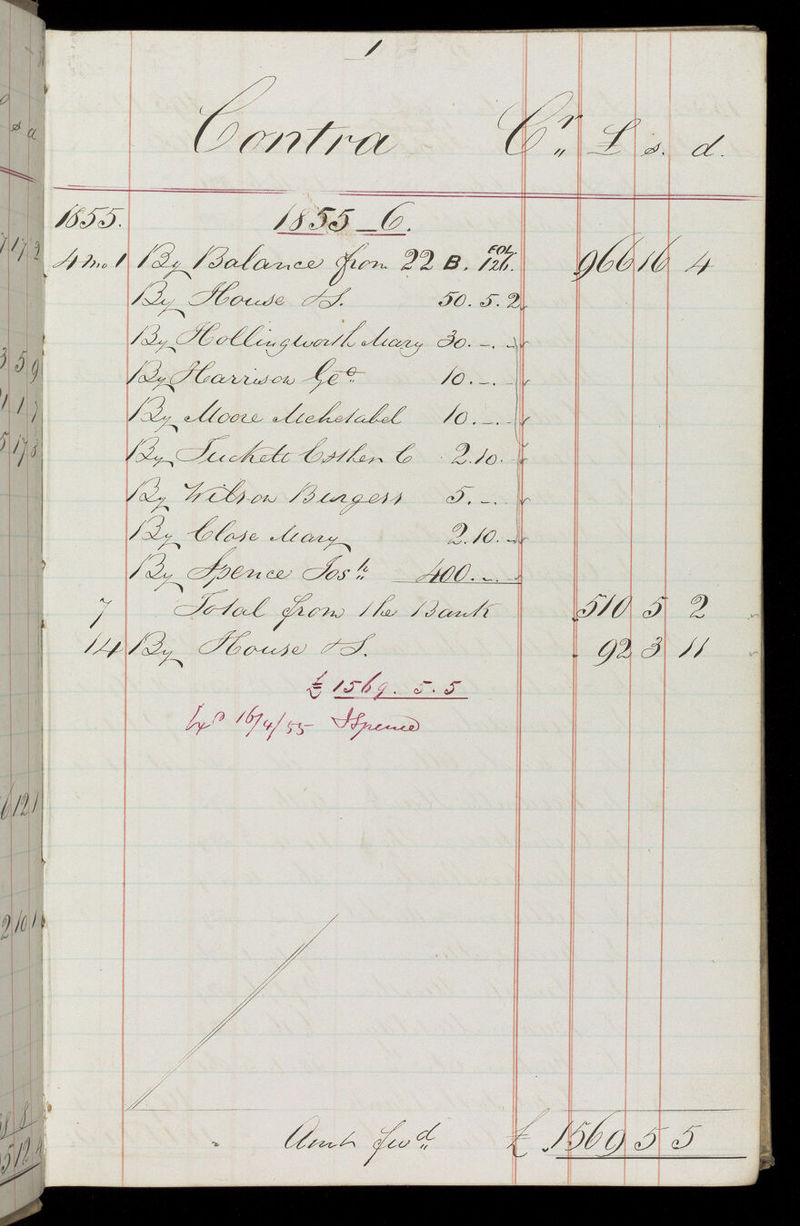 1
Contra Cr £ s. d.
1855. 1855_6.
4 mo 1 By Balance from 22 B. FOL. 126. 966 16 4
By House &S. 50. 5. 2
By Hollingworth Mary 30. -. -
By Harrison Geo 10. -. -
By Moore Mehetabel 10. -. -
By Tuckett Esther C 2. 10. -
By Wilson Burgess 5. -. -
By Close Mary 2. 10. -
By Spence Josh 400. -. -
7 Total from the Bank 510 5 2
14 By House &S. 92 3 11
£ 1569. 5. 5
Exd 16/4/55 JSpence
Amt fwd £ 1569 5 5